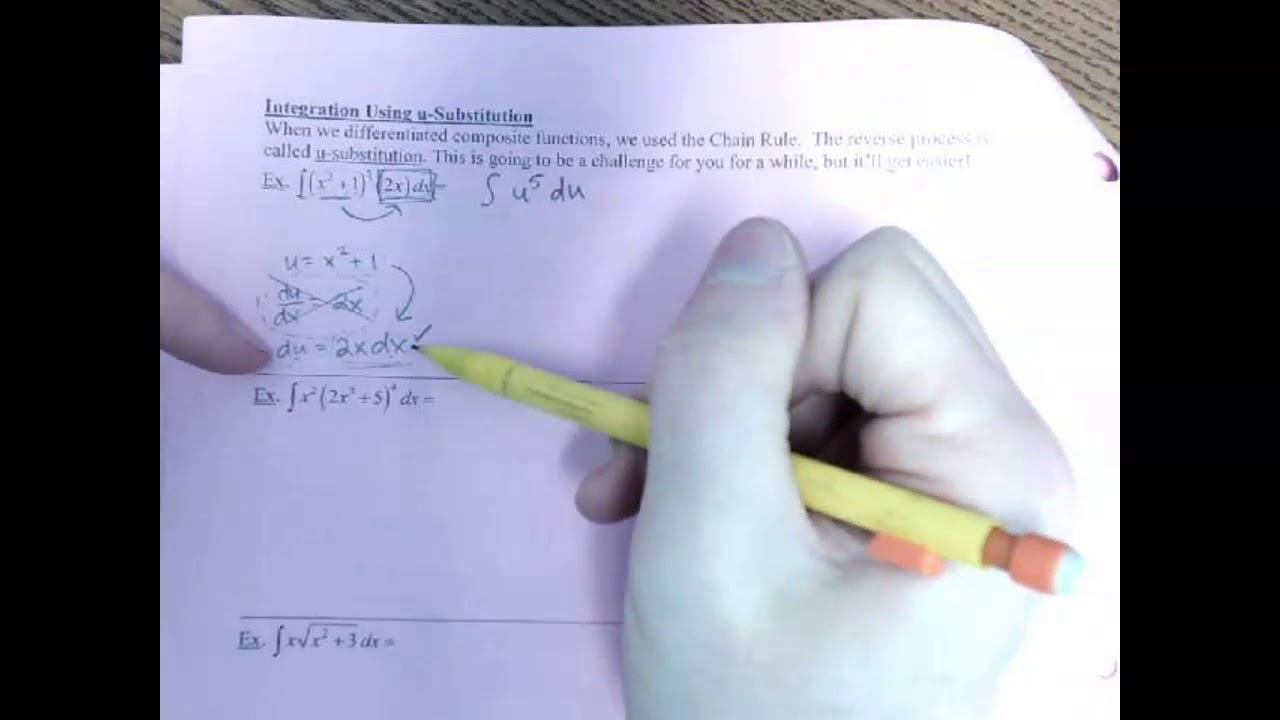 Integration Using u-Substitution
When we differentiated composite functions, we used the Chain Rule. The reverse process is
called u-substitution. This is going to be a challenge for you for a while, but it'll get easier!
Ex. ∫(x² + 1)⁵(2x)dx = ∫ u⁵ du
u = x² + 1
du/dx = 2x
du = 2x dx ✓
Ex. ∫x²(2x³ + 5)⁴ dx =
Ex. ∫x√(x² + 3) dx =